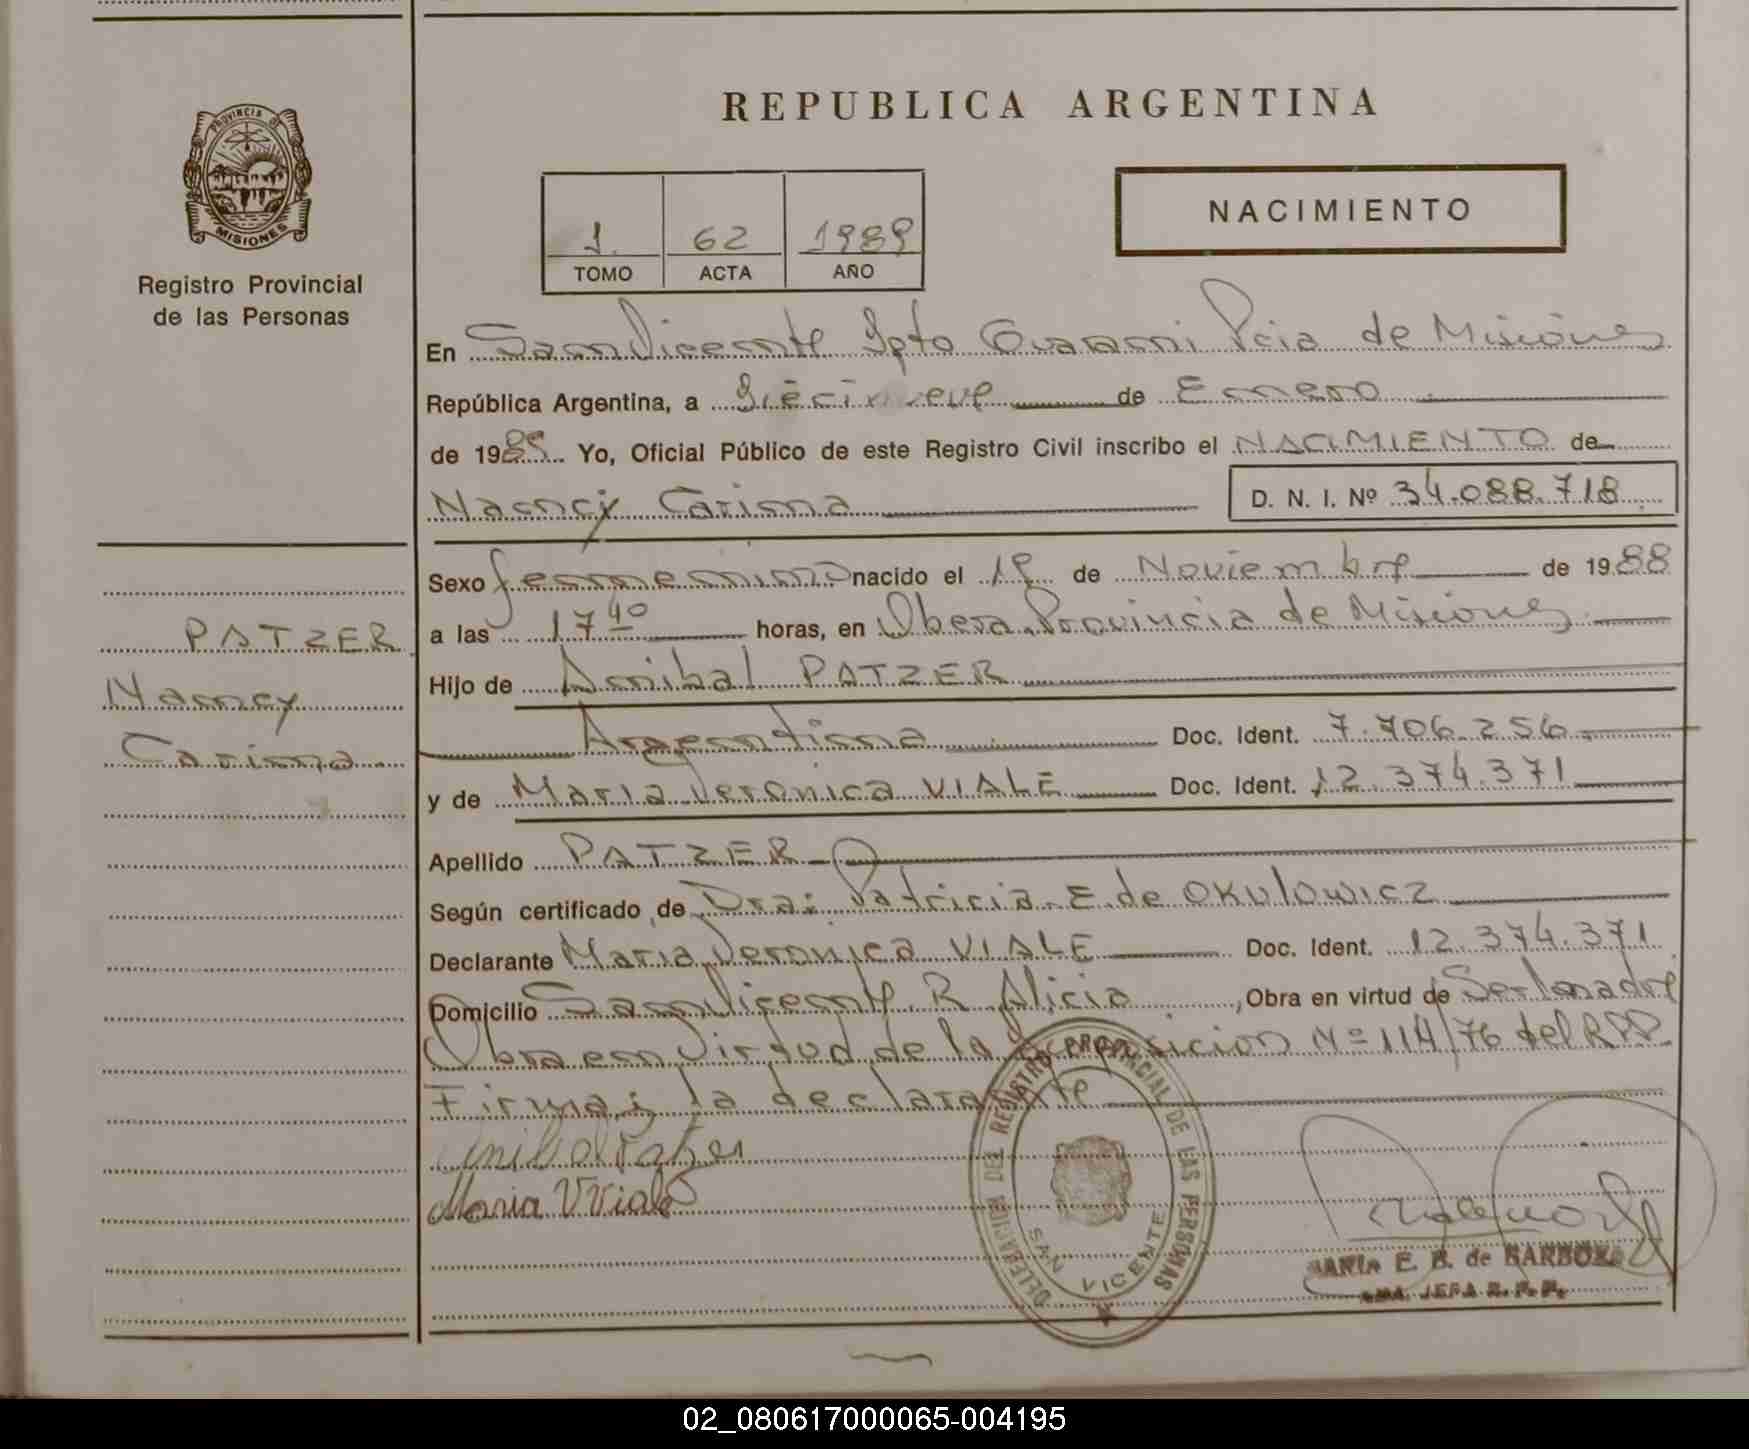 PROVINCIA DE
MISIONES
Registro Provincial
de las Personas
REPUBLICA ARGENTINA
NACIMIENTO
1. 62 1989
TOMO ACTA AÑO
En San Vicente Dpto Guarani Pcia de Misiones
República Argentina, a Diecinueve de Enero
de 1989. Yo, Oficial Público de este Registro Civil inscribo el NACIMIENTO de
Nancy Carina D. N. I. Nº 34.088.718
Sexo femenino nacido el 19 de Noviembre de 1988
a las 17 40 horas, en Obera Provincia de Misiones
Hijo de Anibal PATZER
Argentina Doc. Ident. 7.706.256
y de Maria Veronica VIALE Doc. Ident. 12.374.371
Apellido PATZER
Según certificado de Dra: Patricia E. de OKULOWICZ
Declarante Maria Veronica VIALE Doc. Ident. 12.374.371
Domicilio San Vicente R Alicia, Obra en virtud de Ser la madre
Obra en Virtud de la Disposicion Nº 114/76 del RPP.
Firma: la declarante
Anibal Patzer
Maria V Viale
PATZER
Nancy
Carina
DELEGACION DEL REGISTRO PROVINCIAL DE LAS PERSONAS
SAN VICENTE
MARIA E. B. de BARBOZA
JEFA R. P. P.
02_080617000065-004195